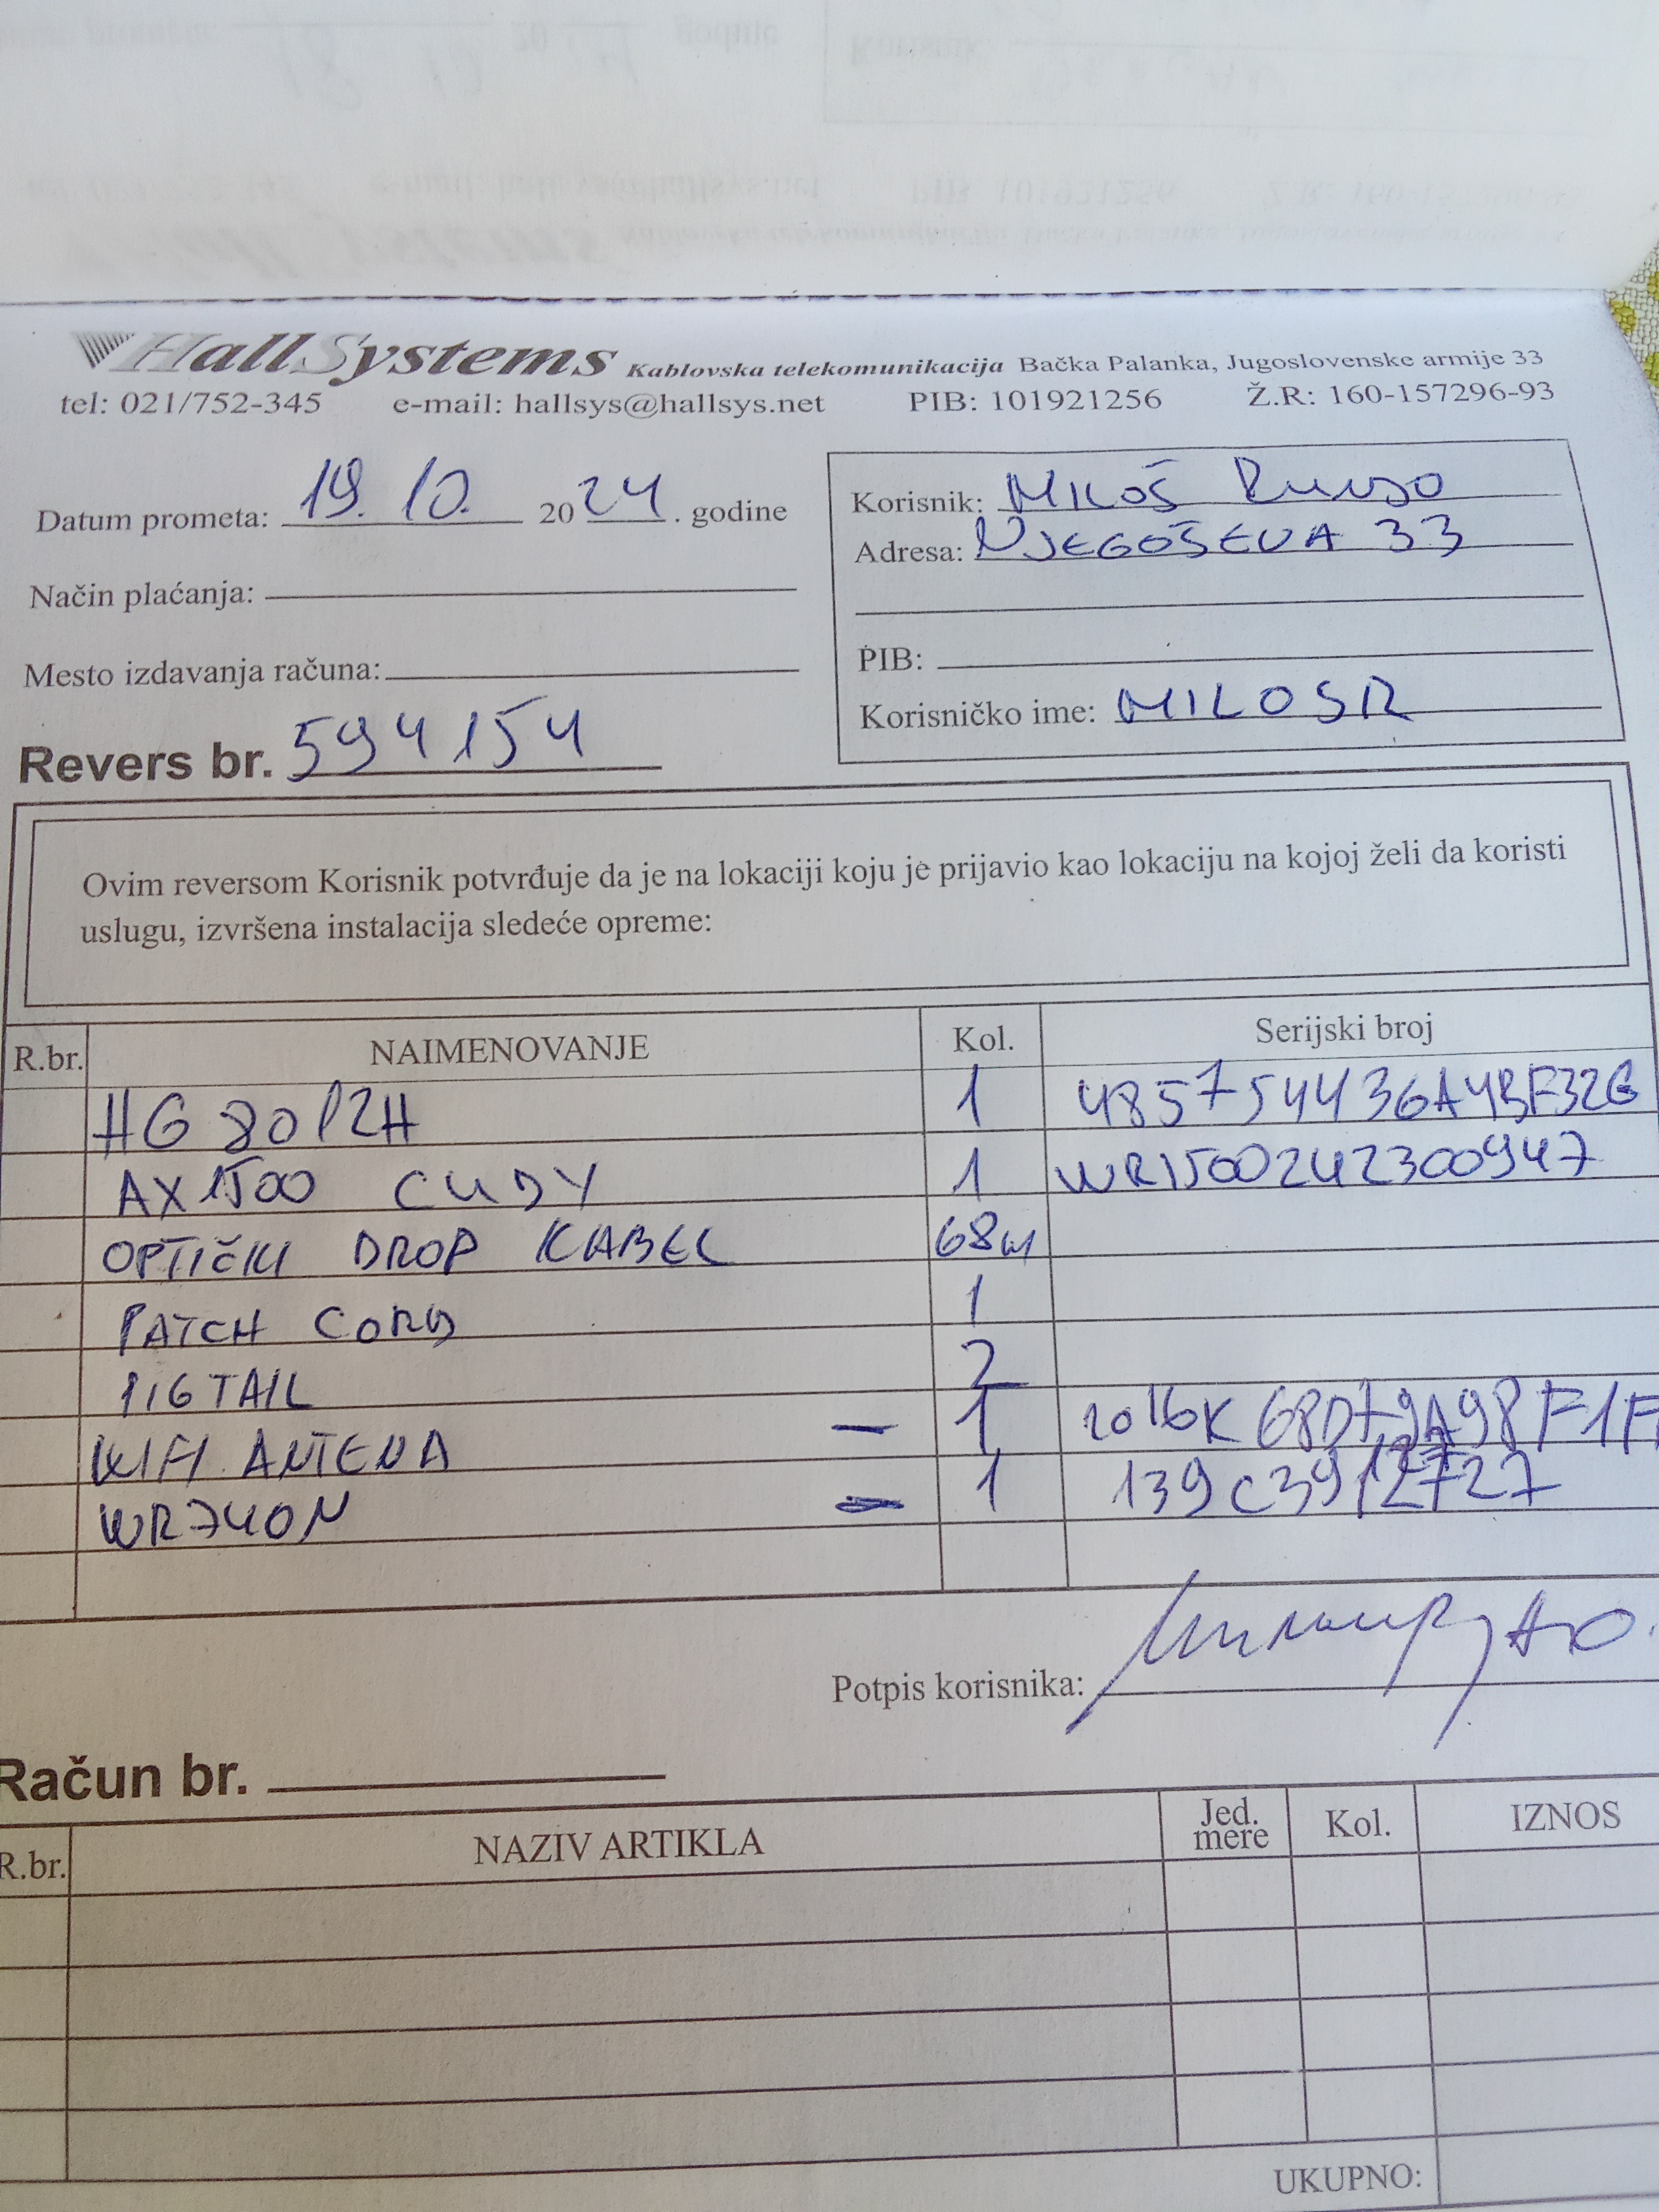 HallSystems Kablovska telekomunikacija Bačka Palanka, Jugoslovenske armije 33
tel: 021/752-345 e-mail: hallsys@hallsys.net PIB: 101921256 Ž.R: 160-157296-93
Datum prometa: 19. 10. 2024. godine
Korisnik: MILOŠ
Adresa: NJEGOŠEVA 33
Način plaćanja:
PIB:
Mesto izdavanja računa:
Korisničko ime: MILOSR
Revers br. 594154
Ovim reversom Korisnik potvrđuje da je na lokaciji koju je prijavio kao lokaciju na kojoj želi da koristi
uslugu, izvršena instalacija sledeće opreme:
R.br. NAIMENOVANJE Kol. Serijski broj
HG 8012H 1
AX1500 CUDY 1 WR1500242300947
OPTIČKI DROP KABEL 68m
PATCH CORD 1
PIGTAIL 2
WIFI ANTENA - 1
WR740N - 1
Potpis korisnika:
Račun br.
R.br. NAZIV ARTIKLA Jed. mere Kol. IZNOS
UKUPNO: